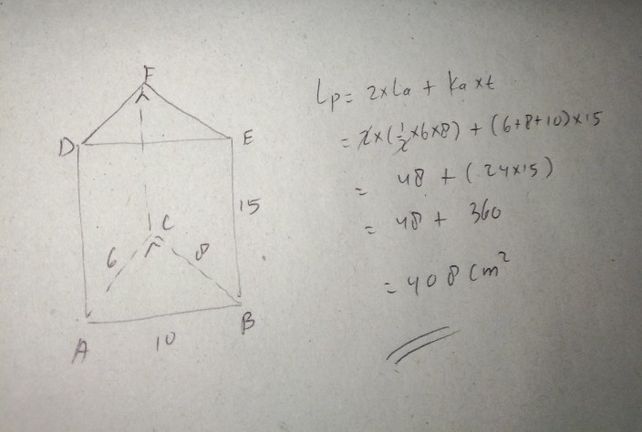 F
D
E
15
C
6
8
A
10
B
Lp = 2xLa + Kaxt
= 2x(1/2x6x8) + (6+8+10)x15
= 48 + (24x15)
= 48 + 360
= 408 cm²